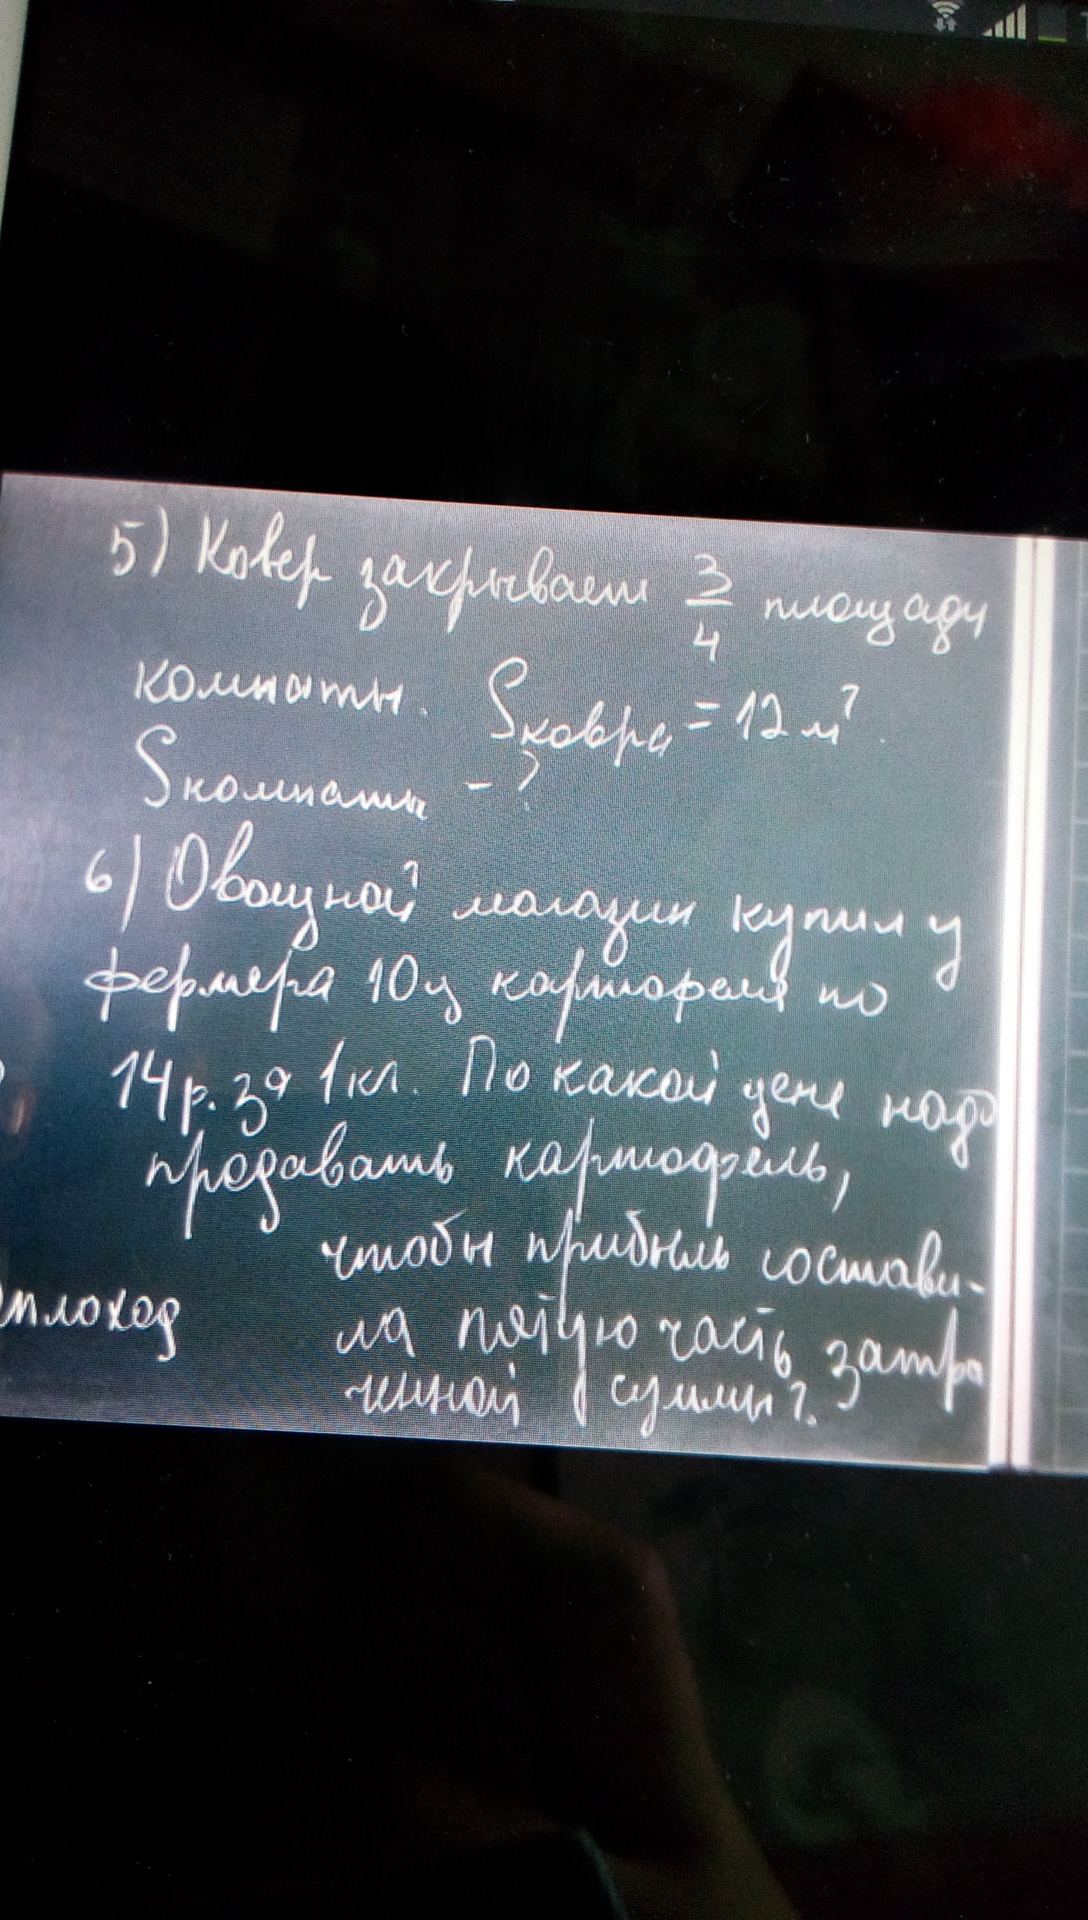 5) Ковер закрывает 3/4 площади
комнаты. Sковра = 12 м².
Sкомнаты - ?
6) Овощной магазин купил у
фермера 10ц картофеля по
14р. за 1кг. По какой цене надо
продавать картофель,
чтобы прибыль состави-
ла пятую часть затра
ченной суммы?.
плоход